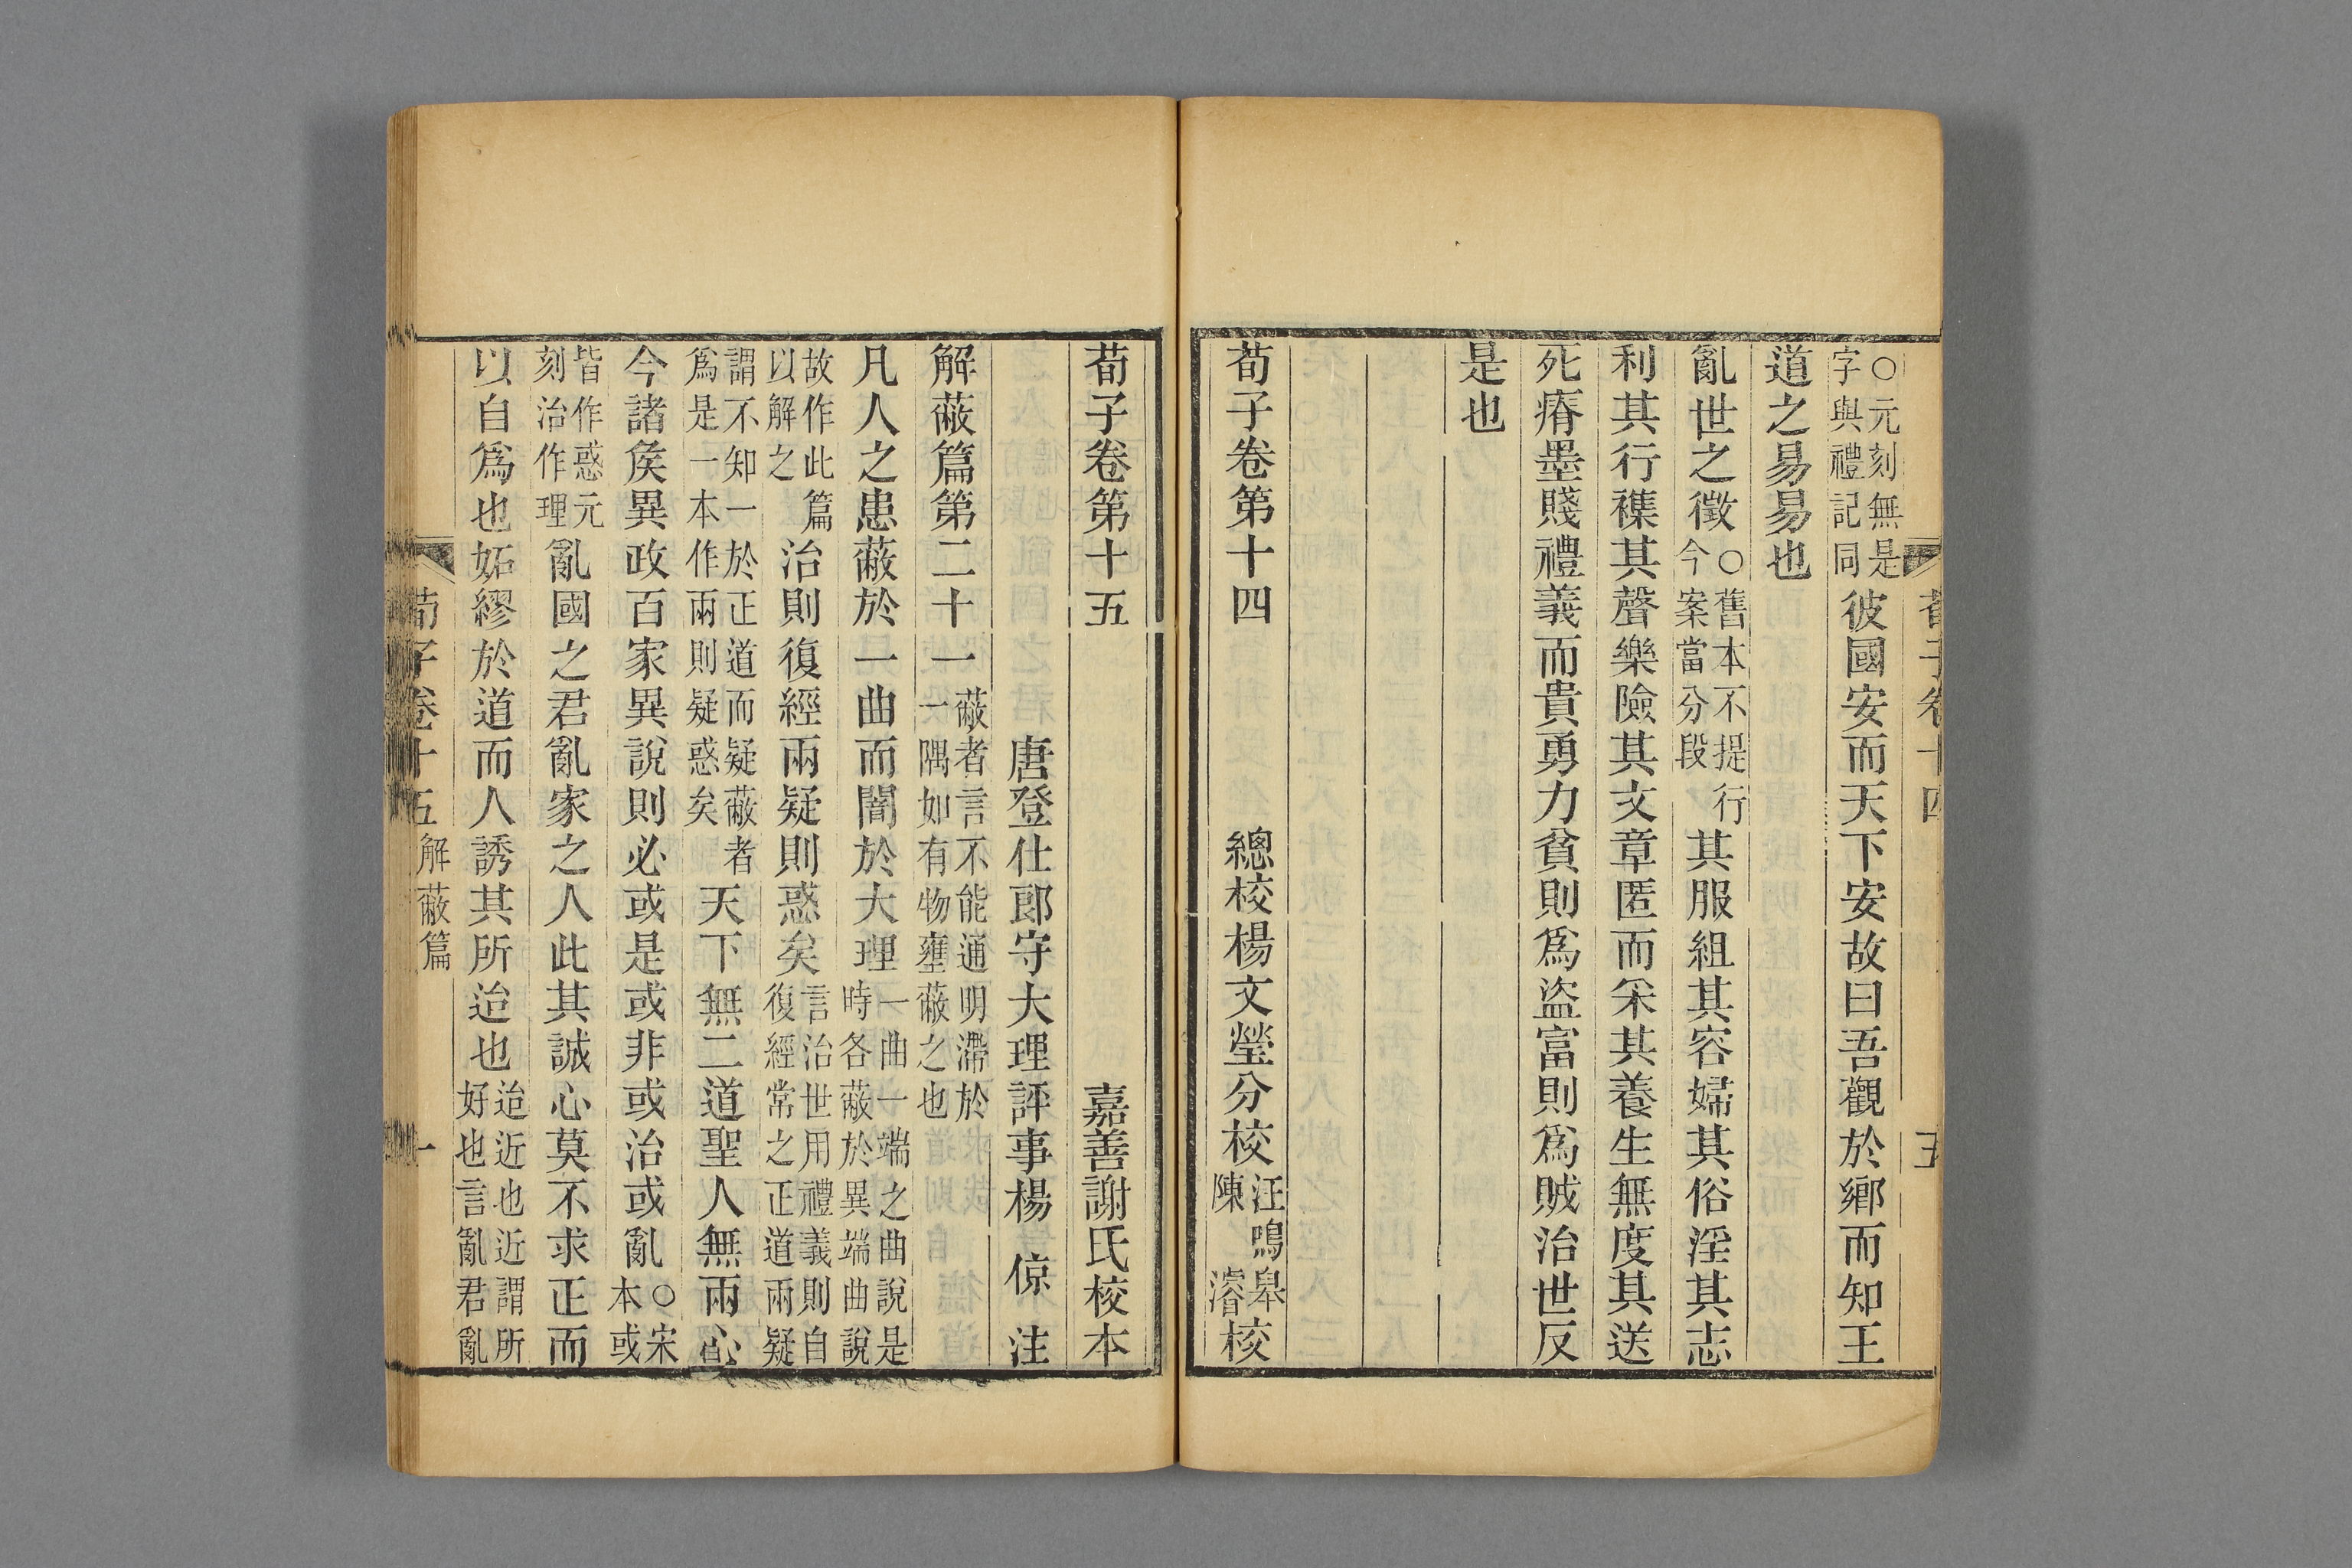 ○元刻無是
字與禮記同
彼國安而天下安故曰吾觀於鄉而知王
道之易易也
亂世之徵
○舊本不提行
今案當分段
其服組其容婦其俗淫其志
利其行襍其聲樂險其文章匿而采其養生無度其送
死瘠墨賤禮義而貴勇力貧則爲盜富則爲賊治世反
是也
荀子卷第十四
總校楊文瑩分校
汪鳴皋
陳濬
校
荀子卷第十五
嘉善謝氏校本
唐登仕郎守大理評事楊倞注
解蔽篇第二十一
蔽者言不能通明滯於
一隅如有物壅蔽之也
凡人之患蔽於一曲而闇於大理
一曲一端之曲說是
時各蔽於異端曲說
故作此篇
以解之
治則復經兩疑則惑矣
言治世用禮義則自
復經常之正道兩疑
謂不知一於正道而疑蔽者
爲是一本作兩則疑惑矣
天下無二道聖人無兩心
今諸矦異政百家異說則必或是或非或治或亂
○宋
本或
皆作惑元
刻治作理
亂國之君亂家之人此其誠心莫不求正而
以自爲也妬繆於道而人誘其所迨也
迨近也近謂所
好也言亂君亂
荀子卷十五
解蔽篇
一